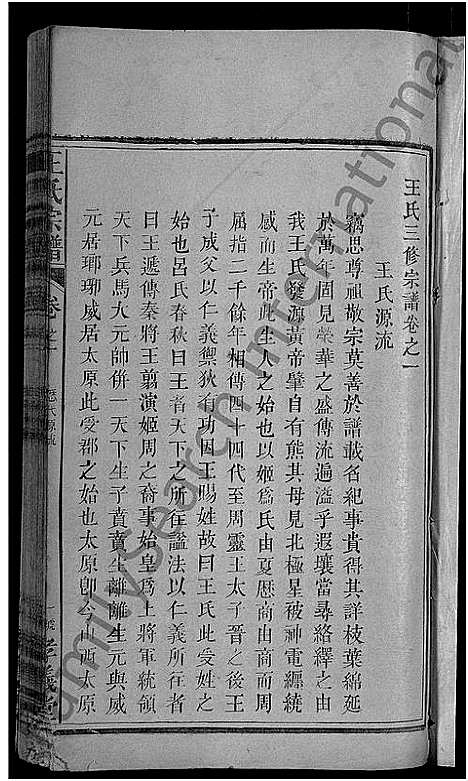 王氏三修宗譜卷之一
王氏源流
竊思尊祖敬宗莫善於譜載名紀事貴得其詳枝葉綿延
於萬年固見榮華之盛傳流遍溢乎遐壤當尋絡繹之由
我王氏發源黃帝肇自有熊其母見北極星被神電纏繞
感而生帝此生人之始也以姬爲氏由夏歷商由商而周
屈指二千餘年相傳四十四代至周靈王太子晉之後王
子成父以仁義禦狄有功因王賜姓故曰王氏此受姓之
始也呂氏春秋曰王者天下之所往謚法以仁義所往者
曰王遞傳秦將王翦演姬周之裔事始皇爲上將軍統領
天下兵馬大元帥併一天下生子賁賁生離離生元與威
元居瑯琊威居太原此受郡之始也太原卽今山西太原
王氏宗譜 卷之一
FamilySearch International